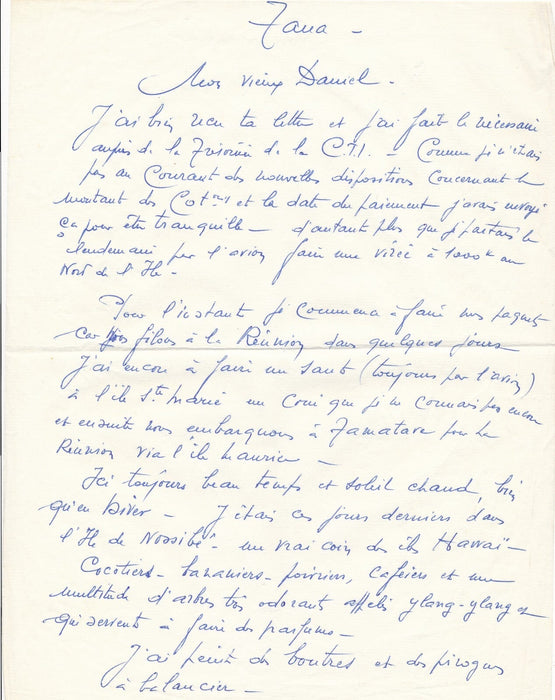 Tana -
Mon vieux Daniel -
J'ai bien reçu ta lettre et j'ai fait le nécessaire
auprès de la Trésorerie de la C.T.I. - Comme je n'étais
pas au Courant des nouvelles dispositions concernant le
montant des Cot^ons et la date du paiement j'avais envoyé
ça pour être tranquille - d'autant plus que je partais le
lendemain par l'avion faire une virée à 1000 K au
Nord de l'Ile -
Pour l'instant je commence à faire mes paquets
car filons à la Réunion dans quelques jours
J'ai encore à faire un saut (toujours par l'avion)
à l'île Ste Marie un Coin que je ne connais pas encore
et ensuite nous embarquons à Tamatave pour la
Réunion via l'île Maurice -
Ici toujours beau temps et soleil chaud, bien
qu'en hiver - J'étais ces jours derniers dans
l'Ile de Nossibé - un vrai coin des îles Hawaï -
Cocotiers - bananiers - poivriers, caféiers et une
multitude d'arbres très odorant appelés ylang-ylang et
qui servent à faire des parfums -
J'ai peint des boutres et des pirogues
à balancier -